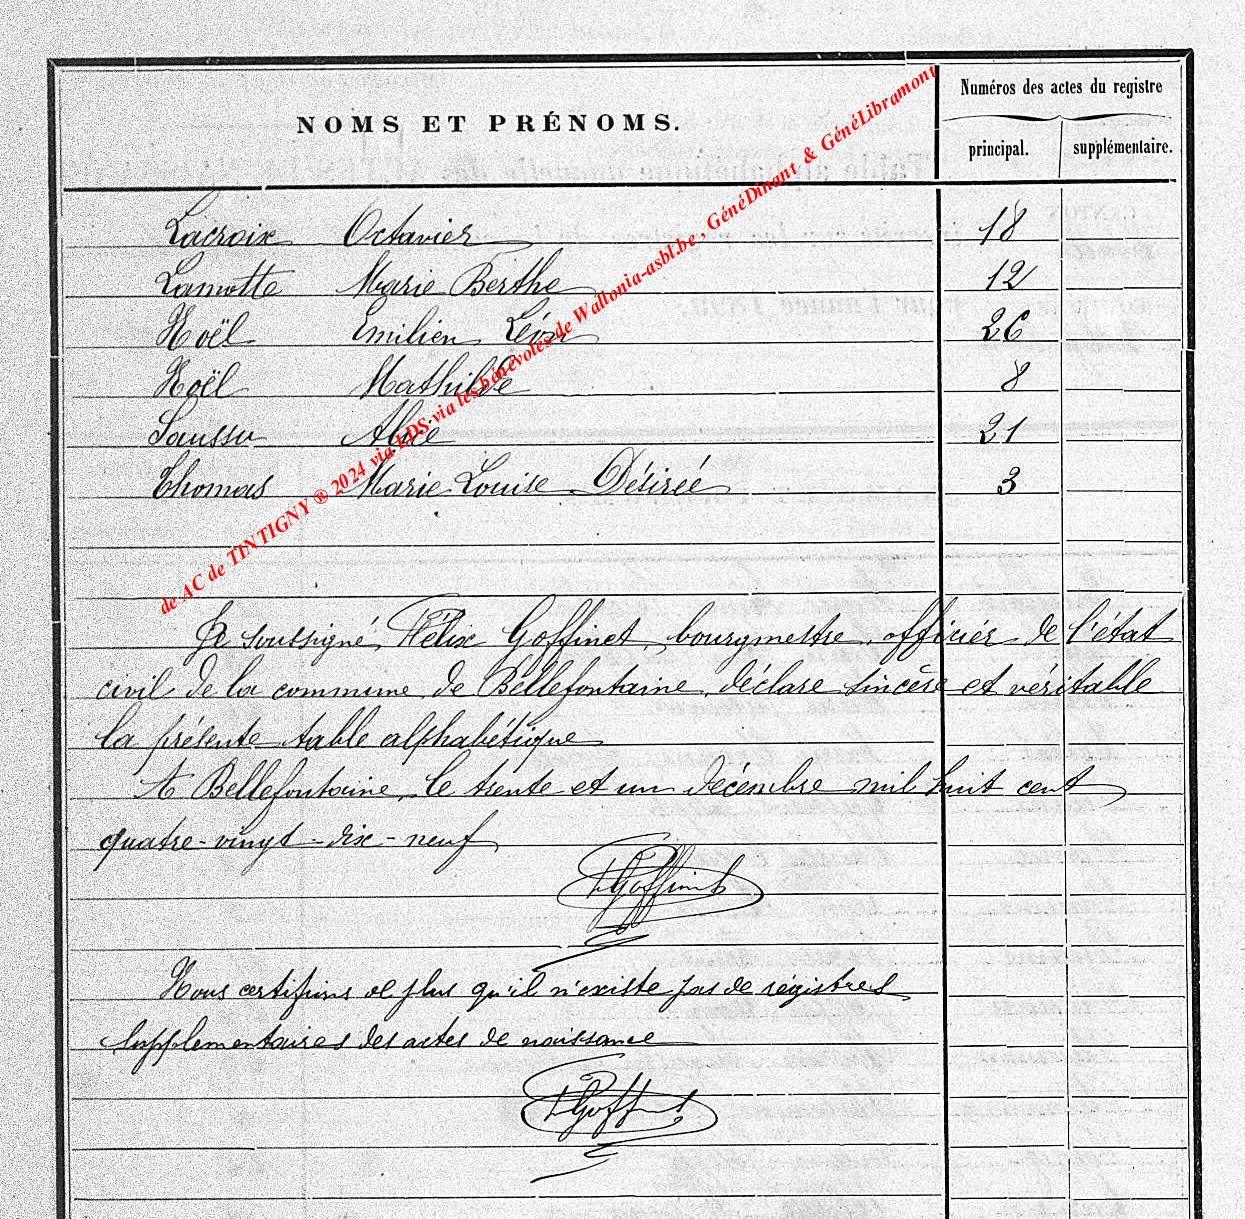 NOMS ET PRÉNOMS.
Numéros des actes du registre
principal. supplémentaire.
Lacroix Octavier 18
Lamotte Marie Berthe 12
Noël Emilien Léon 26
Noël Mathilde 8
Saussu Alice 21
Thomas Marie Louise Désirée 3
Je soussigné, Félix Goffinet, bourgmestre, officier de l'état
civil de la commune de Bellefontaine, déclare sincère et véritable
la présente table alphabétique
A Bellefontaine, le trente et un décembre mil huit cent
quatre-vingt-dix-neuf
FGoffinet
Nous certifions de plus qu'il n'existe pas de régistres
supplémentaires des actes de naissance
FGoffinet
de AC de TINTIGNY ® 2024 via LDS via les bénévoles de Wallonia-asbl.be, GénéDinant & GénéLibramont